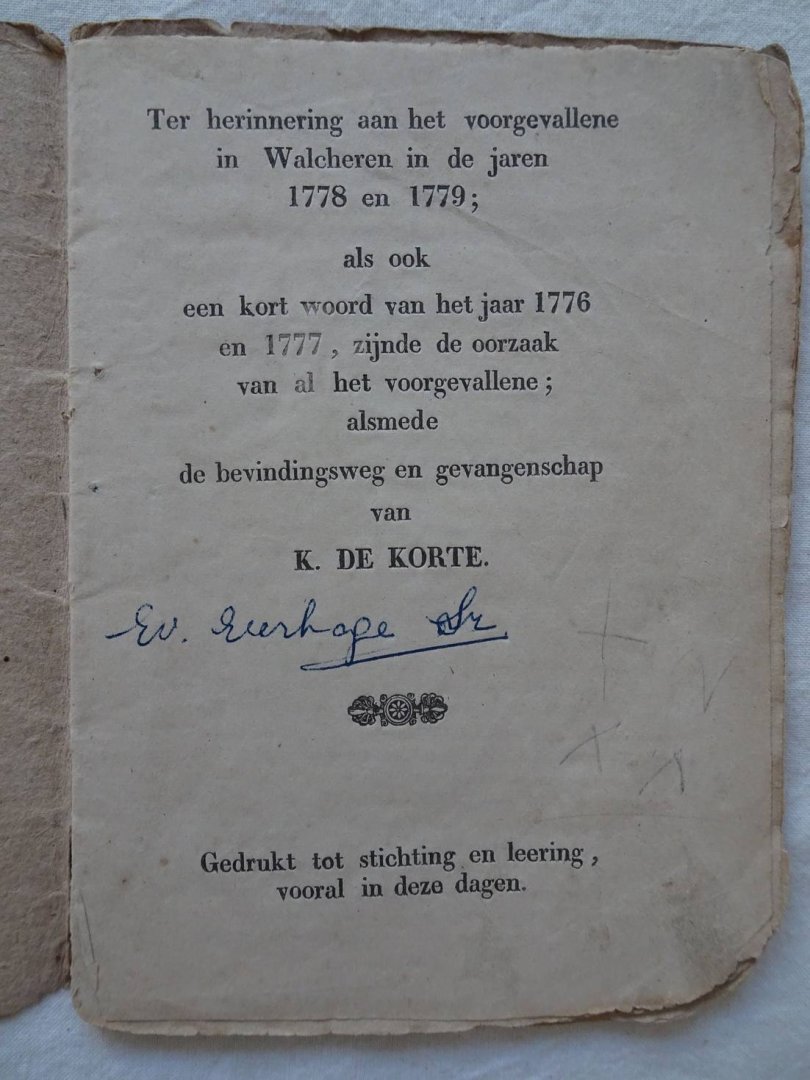 Ter herinnering aan het voorgevallene
in Walcheren in de jaren
1778 en 1779;
als ook
een kort woord van het jaar 1776
en 1777, zijnde de oorzaak
van al het voorgevallene;
alsmede
de bevindingsweg en gevangenschap
van
K. DE KORTE.
Ev. Everhage Sr
Gedrukt tot stichting en leering,
vooral in deze dagen.